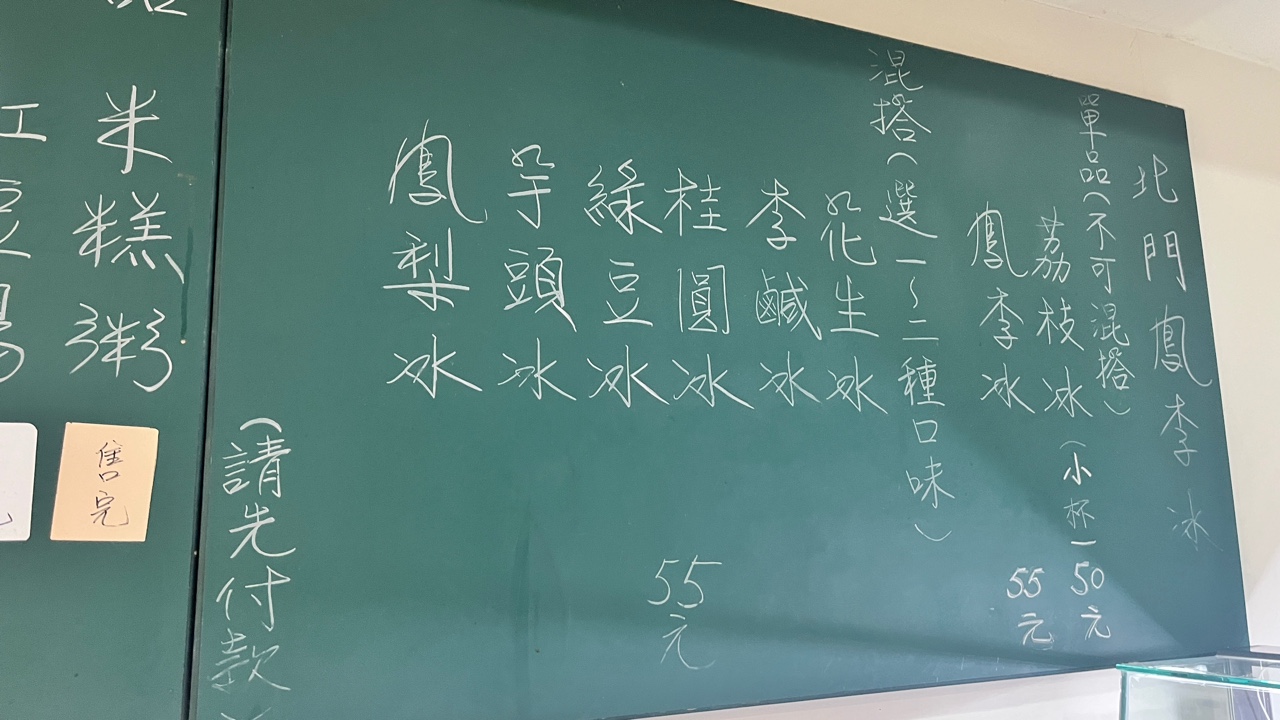 北門鳳李冰
單品(不可混搭)
荔枝冰(小杯) 50元
鳳李冰 55元
混搭(選一~二種口味)
花生冰
李鹹冰
桂圓冰
綠豆冰
芋頭冰
鳳梨冰
55元
(請先付款)
米糕粥
售完